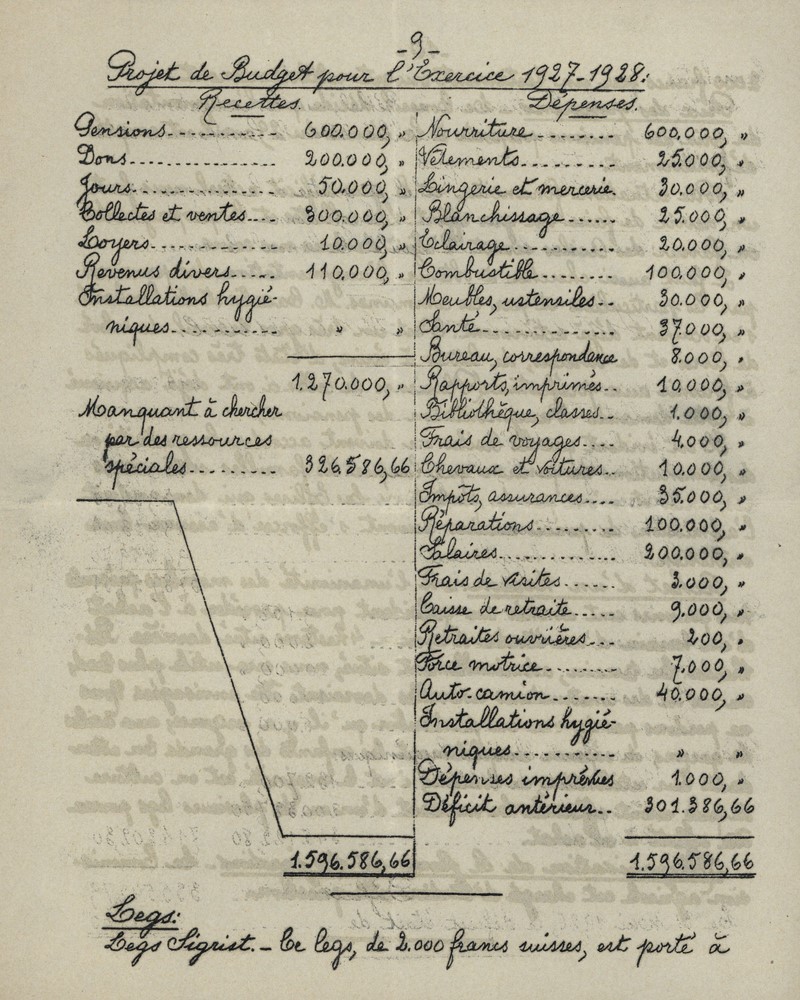 -9-
Projet de Budget pour l'Exercice 1927-1928:
Recettes.
Pensions........... 600.000, "
Dons............... 200.000, "
Jours.............. 50.000, "
Collectes et ventes.... 300.000, "
Loyers............. 10.000, "
Revenus divers..... 110.000, "
Installations hygié-
niques........... " "
1.270.000, "
Manquant à chercher
par des ressources
spéciales......... 326.586,66
1.596.586,66
Dépenses.
Nourriture........ 600.000, "
Vêtements......... 25.000, "
Lingerie et mercerie. 30.000, "
Blanchissage...... 25.000, "
Eclairage.......... 20.000, "
Combustible........ 100.000, "
Meubles, ustensiles.. 30.000, "
Santé............. 37.000, "
Bureau, correspondance 8.000, "
Rapports, imprimés.. 10.000, "
Bibliothèque, classes.. 1.000, "
Frais de voyages.... 4.000, "
Chevaux et voitures.. 10.000, "
Impôts, assurances.... 35.000, "
Réparations........ 100.000, "
Salaires............ 200.000, "
Frais de visites...... 3.000, "
Caisse de retraite.... 9.000, "
Retraites ouvrières... 200, "
Force motrice........ 7.000, "
Auto-camion....... 40.000, "
Installations hygié-
niques........... " "
Dépenses imprévues 1.000, "
Déficit antérieur.. 301.386,66
1.596.586,66
Legs:
Legs Sigrist. - Ce legs, de 2.000 francs suisses, est porté à